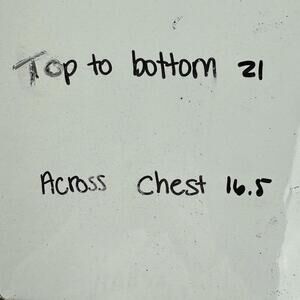 Top to bottom 21
Across Chest 16.5